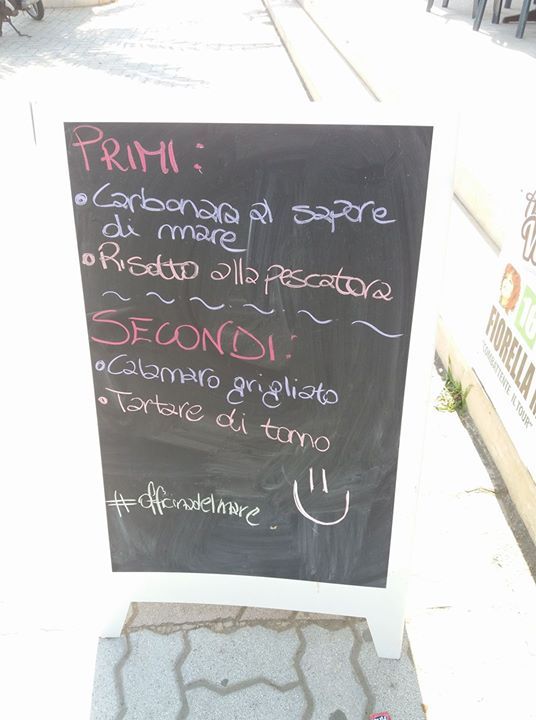 PRIMI:
• Carbonara al sapore
di mare
• Risotto alla pescatora
SECONDI:
• Calamaro grigliato
• Tartare di tonno
#officinadelmare
FIORELLA
"COMBATTENTE IL TOUR"